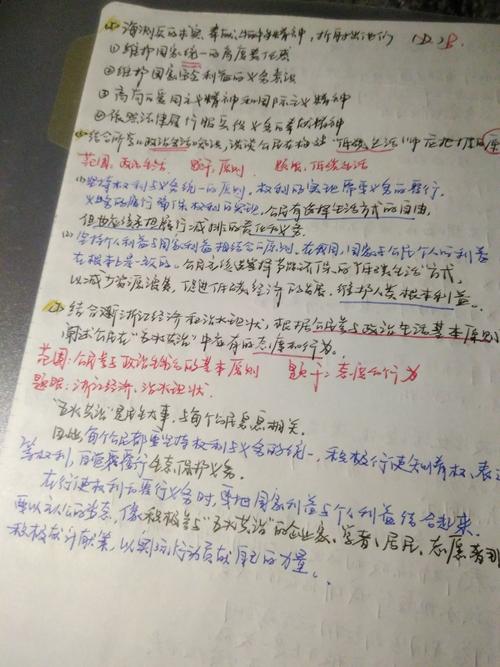 ①维护国家统一的高度责任感
②维护国家安全和利益的义务意识
③高尚的爱国主义精神和国际主义精神
④依照法律履行服兵役义务的奉献精神
结合所学政治生活的知识，谈谈公民在构建"低碳生活"中应把握的原
范围：政治生活 题干：原则 题眼：低碳生活
(1)坚持权利与义务统一的原则，权利的实现需要义务的履行，
义务的履行确保权利的实现，公民有选择生活方式的自由，
但也应该承担履行减排的责任和义务。
(2)坚持个人利益与国家利益相结合的原则。在我国，国家与公民个人的利益
在根本上是一致的。公民应该选择节能环保的低碳生活方式，
以减少资源浪费，促进低碳经济的发展，维护人类根本利益。
结合浙江经济和治水现状，根据公民参与政治生活基本原则
阐述公民在"五水共治"中应有的态度和行为。
范围：公民参与政治生活的基本原则 题干：态度和行为
题眼：浙江经济，治水现状
"五水共治"是民生大事，与每个公民息息相关。
因此每个公民都要坚持权利与义务的统一，积极行使知情权、表
等权利，自觉履行生态保护义务。
在行使权利和履行义务时，要把国家利益与个人利益结合起来。
要以主人公的姿态，像积极参与"五水共治"的企业家、学者、居民、志愿者
积极献计献策，以实际行动贡献自己的力量。